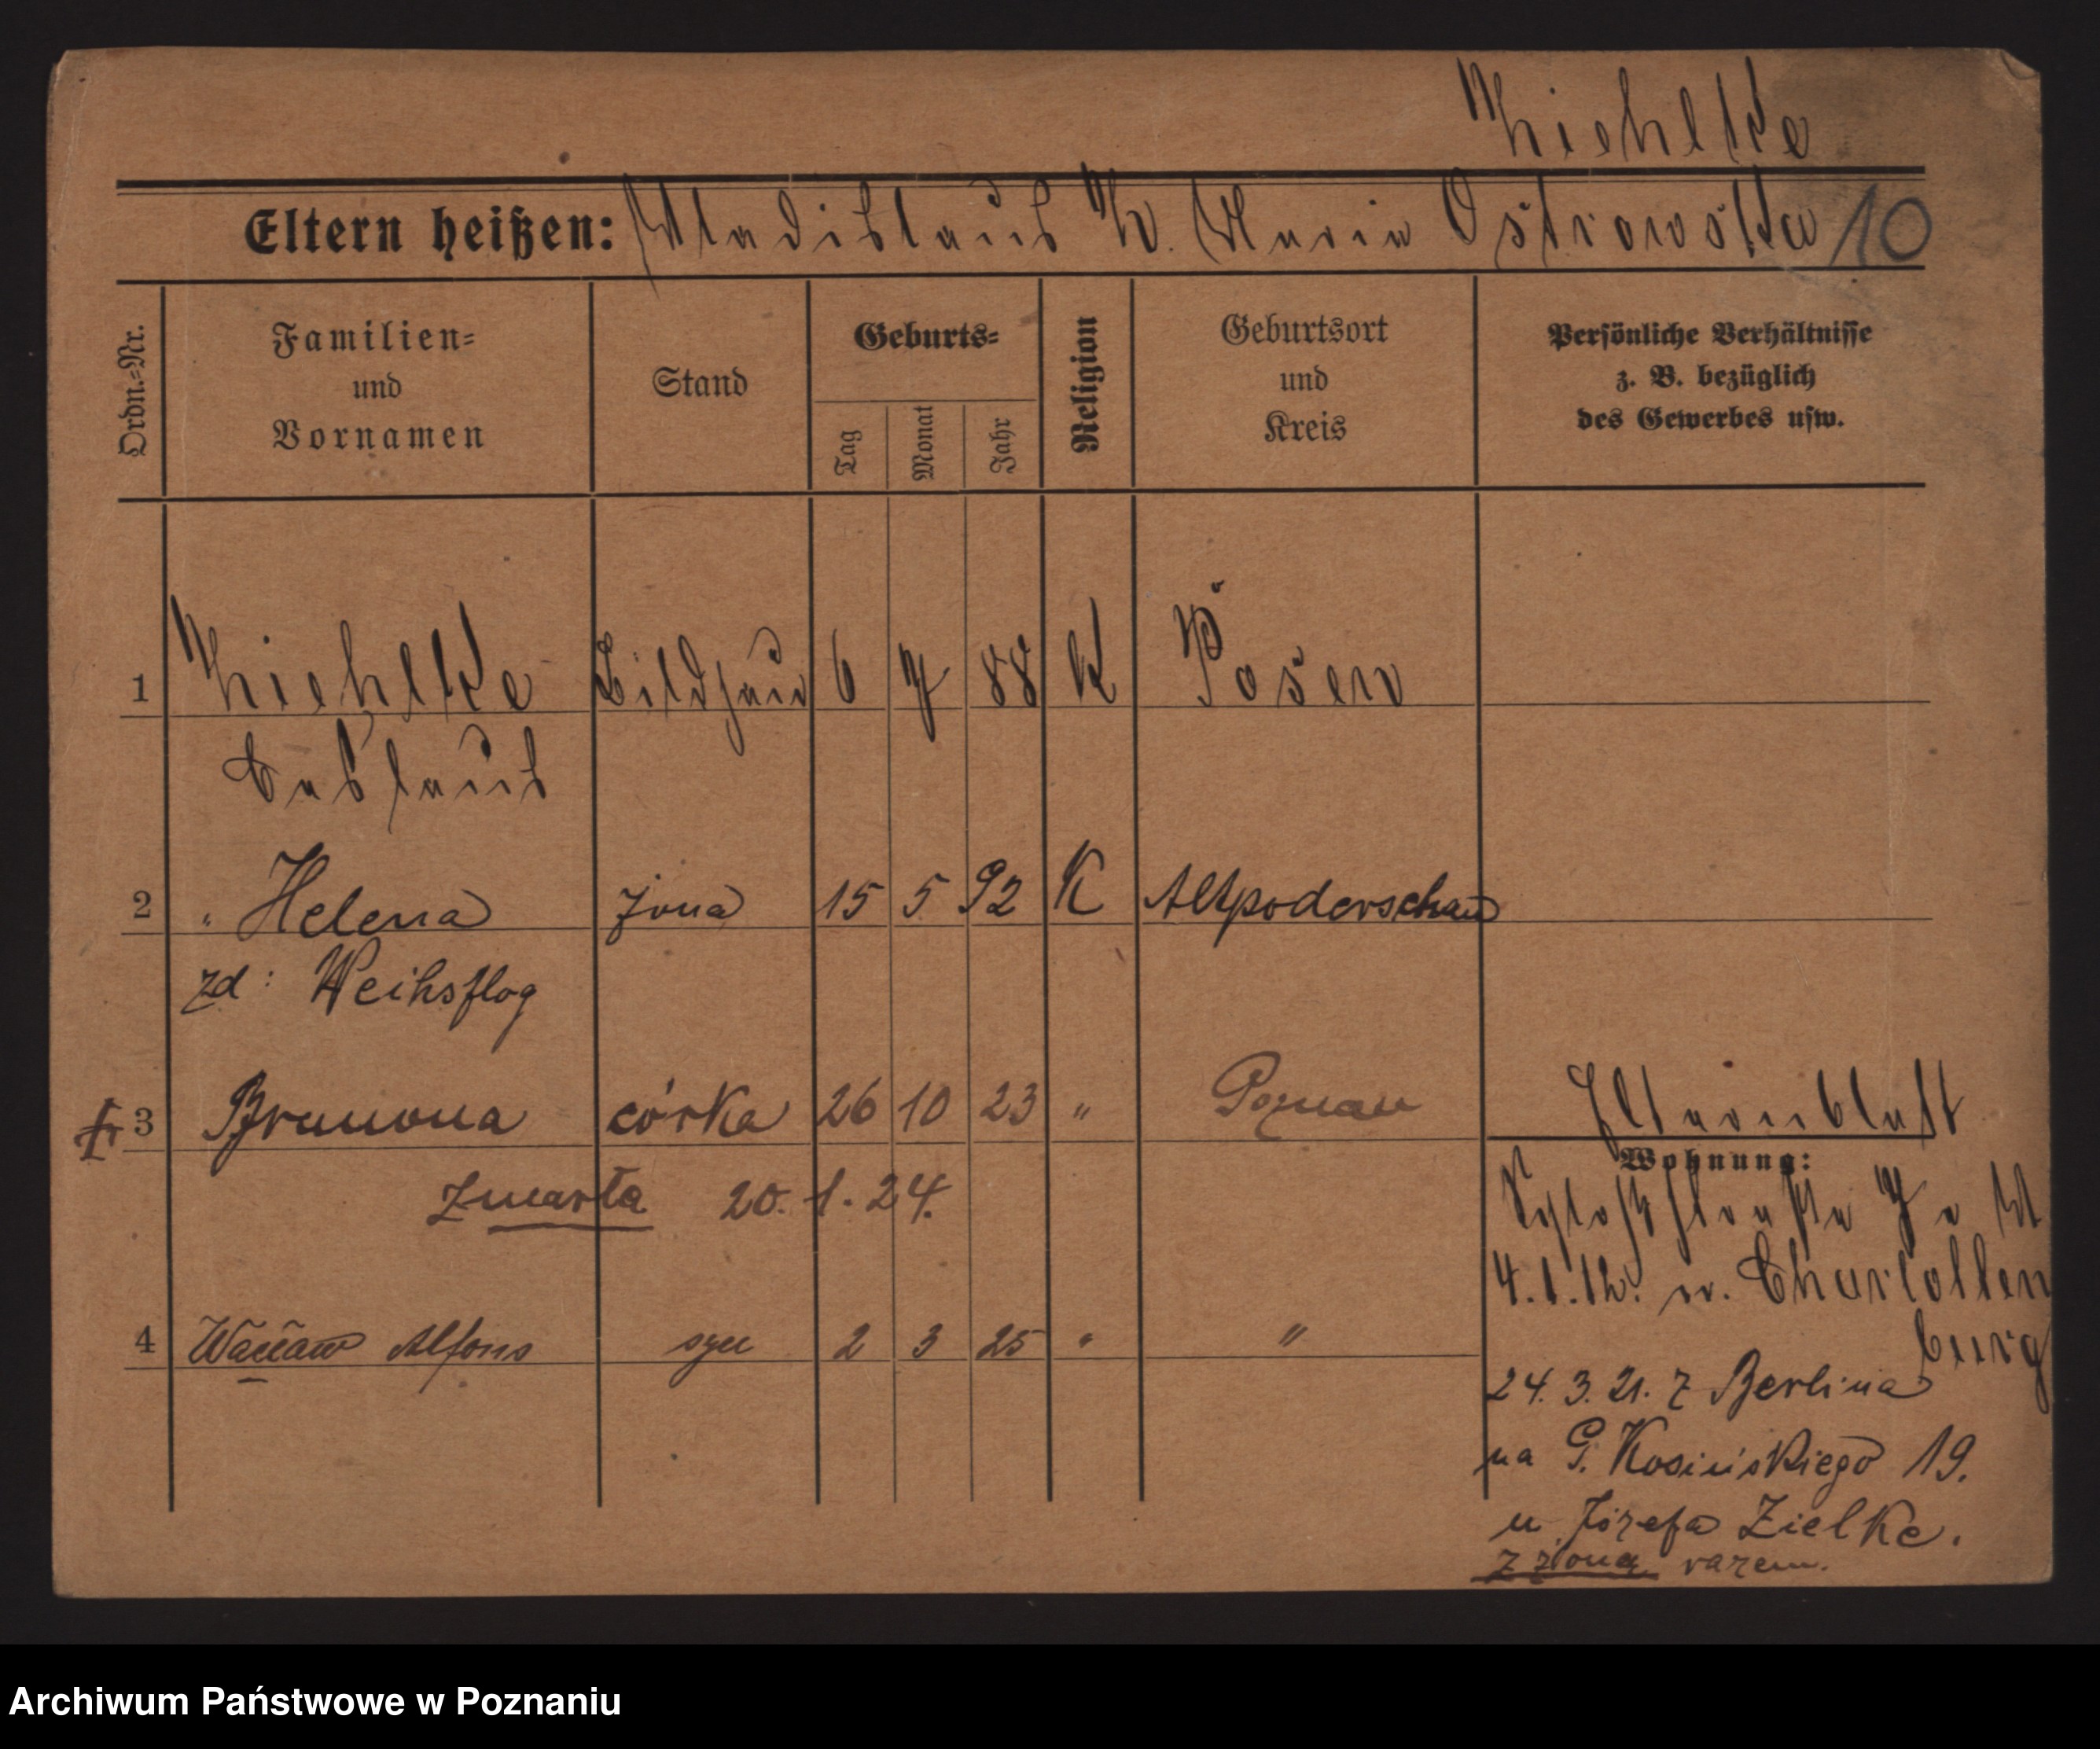 Ziehlke
Eltern heißen: Wladislaus Z. Maria Ostrowska 10
Ordn.=Nr.
Familien=
und
Vornamen
Stand
Geburts=
Tag
Monat
Jahr
Religion
Geburtsort
und
Kreis
Persönliche Verhältnisse
z. B. bezüglich
des Gewerbes usw.
1 Ziehlke Bildhauer 6 7 88 K Posen
Caslaus
2 " Helena żona 15 5 92 K Altpoderschau
zd: Weihsflog
3 Brunona córka 26 10 23 " Poznań
zmarła 20. 1. 24.
4 Wacław Alfons syn 2 3 25 " "
Elternblatt
Wohnung:
Schloßstraße 7 a W
4.1.12. n. Charlotten
burg
24. 3. 21. z Berlina
na G. Kosińskiego 19.
u Józefa Zielke.
z żoną razem.
Archiwum Państwowe w Poznaniu